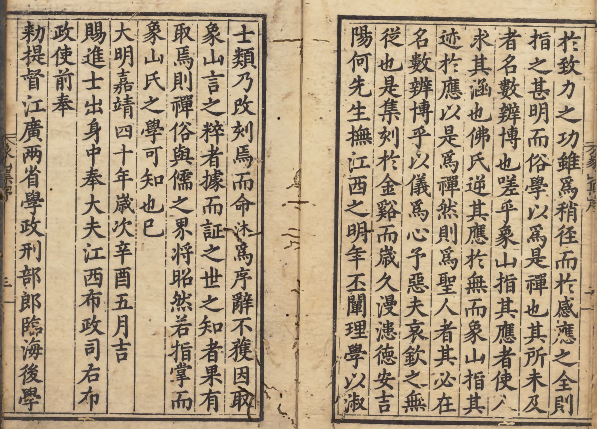 於致力之功雖爲稍徑而於感應之全則
指之甚明而俗學以爲是禪也其所未及
者名數辨博也嗟乎象山指其應者使人
求其涵也佛氏逆其應於無而象山指其
迹於應以是爲禪然則爲聖人者其必在
名數辨博乎以儀爲心予惡夫哀欽之無
從也是集刻於金谿而歲久漫漶德安吉
陽何先生撫江西之明年丕闡理學以淑
士類乃改刻焉而命沐爲序辭不獲因取
象山言之粹者據而証之世之知者果有
取焉則禪俗與儒之界將昭然若指掌而
象山氏之學可知也已
大明嘉靖四十年歲次辛酉五月吉
賜進士出身中奉大夫江西布政司右布
政使前奉
勑提督江廣兩省學政刑部郎臨海後學